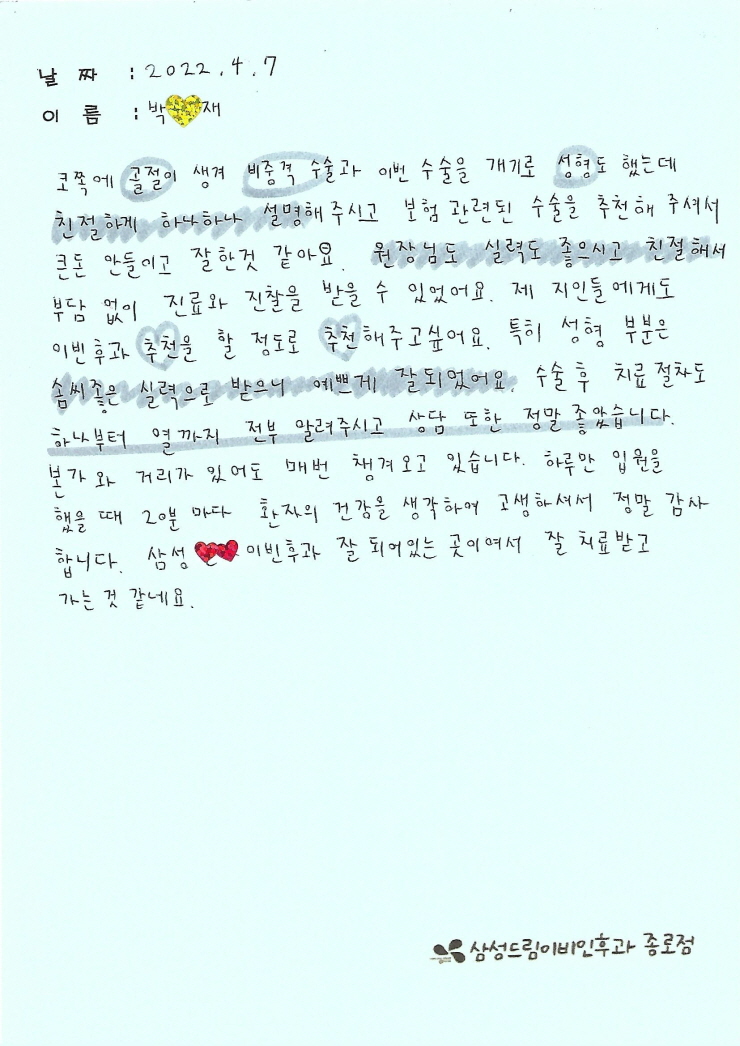 날 짜 : 2022. 4. 7
이 름 : 박 재
코쪽에 골절이 생겨 비중격 수술과 이번 수술을 개기로 성형도 했는데
친절하게 하나하나 설명해주시고 보험 관련된 수술을 추천해 주셔서
큰돈 안들이고 잘한것 같아요. 원장님도 실력도 좋으시고 친절해서
부담 없이 진료와 진찰을 받을 수 있었어요. 제 지인들에게도
이빈후과 추천을 할 정도로 추천해주고싶어요. 특히 성형 부분은
솜씨좋은 실력으로 받으니 예쁘게 잘되었어요. 수술후 치료절차도
하나부터 열까지 전부 알려주시고 상담 또한 정말 좋았습니다.
본가와 거리가 있어도 매번 챙겨오고 있습니다. 하루만 입원을
했을 때 20분 마다 환자의 건강을 생각하여 고생하셔서 정말 감사
합니다. 삼성 이빈후과 잘 되어있는 곳이여서 잘 치료받고
가는 것 같네요.
삼성드림이비인후과 종로점